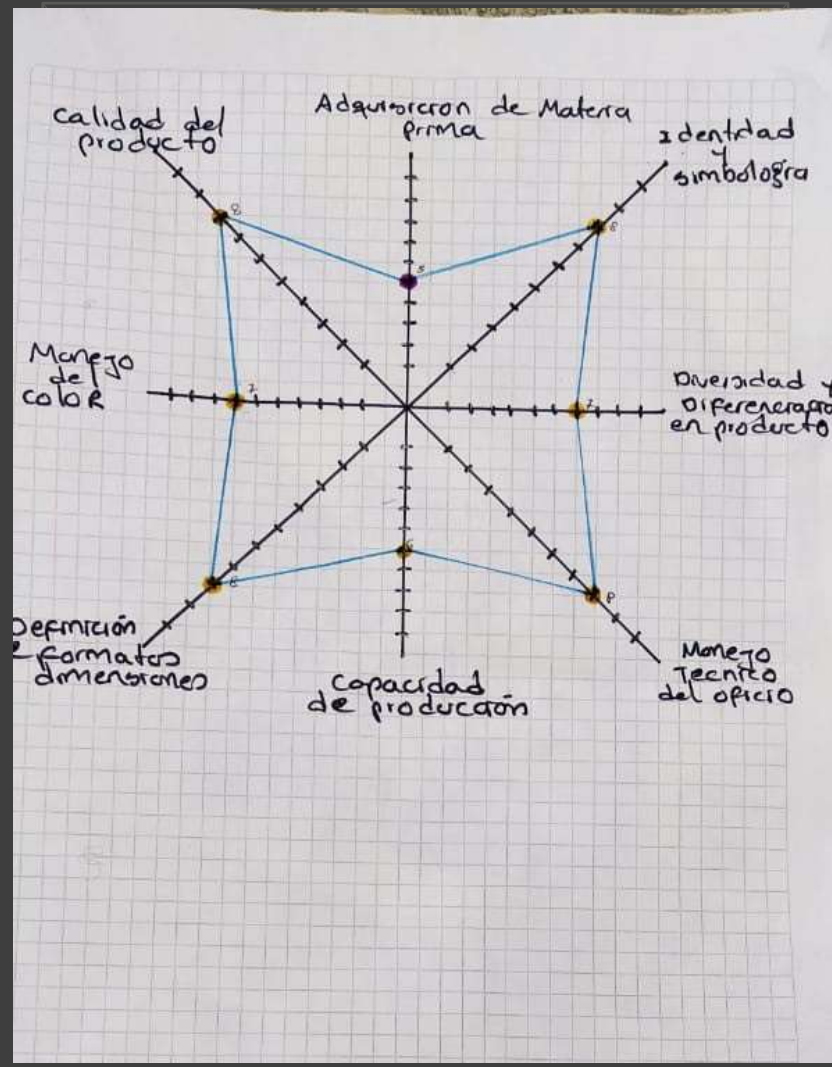 Calidad del
producto
Adquisicion de Materia
prima
Identidad
y
simbologia
8
5
8
Manejo
del
coloR
7
7
Diversidad y
Diferenciacio
en producto
6
8
8
Definición
formatos
dimensiones
Capacidad
de producción
Manejo
Tecnico
del oficio